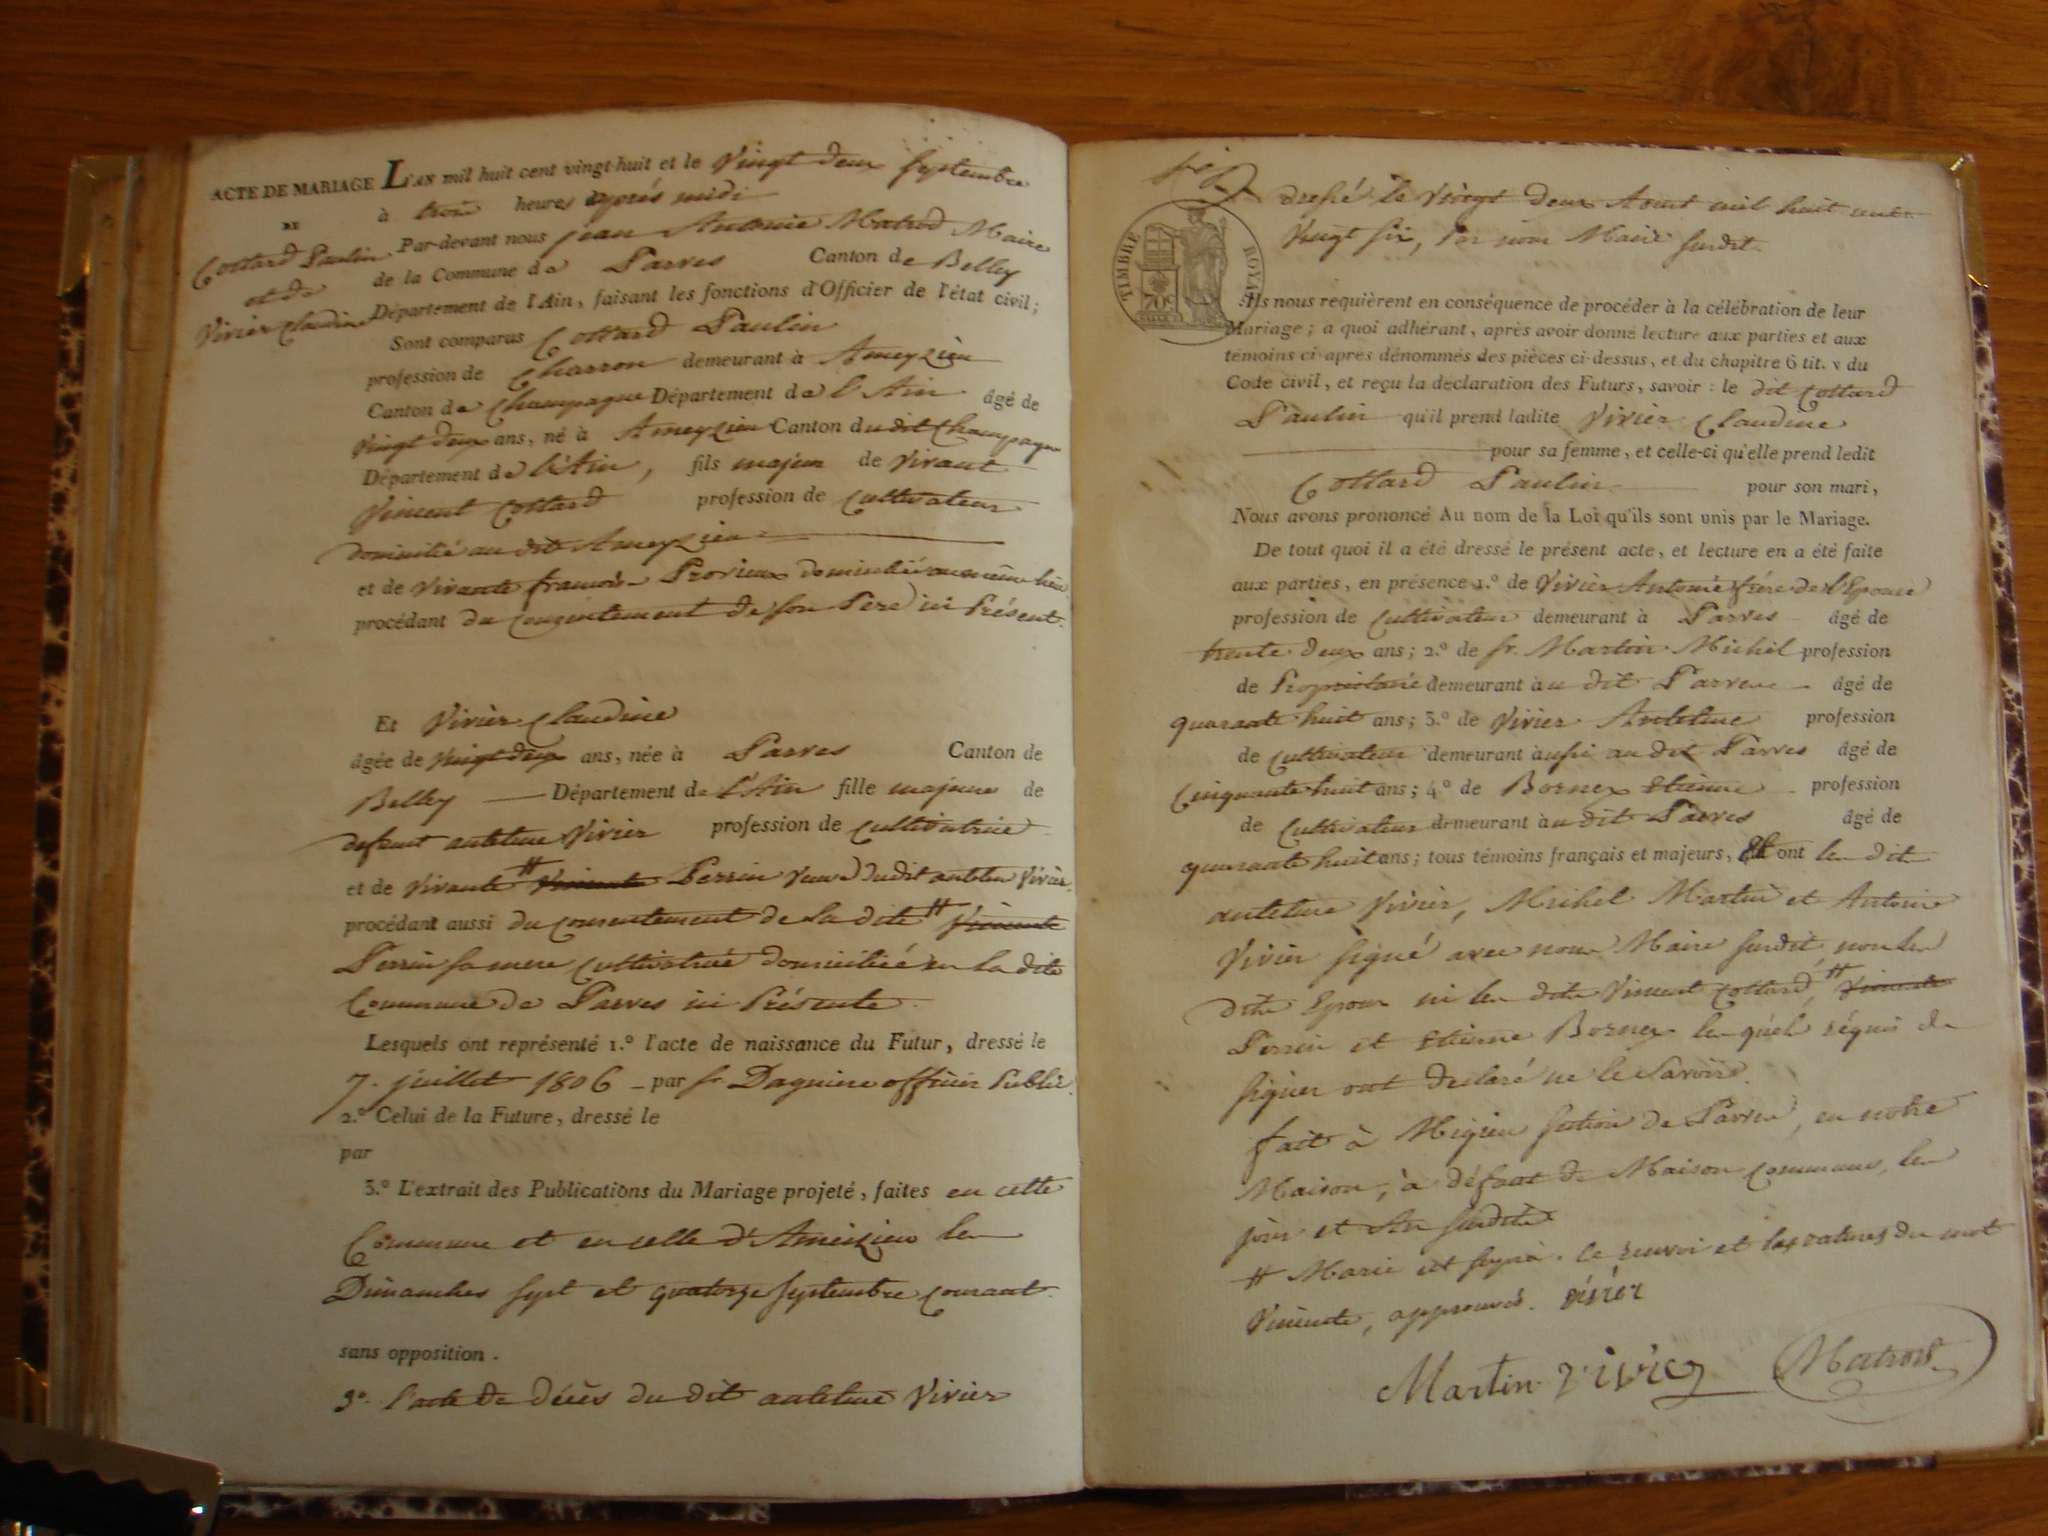 ACTE DE MARIAGE L'AN mil huit cent vingt-huit et le Vingt deux Septembre
DE
à trois heures après midi
Cottard Paulin
et de
Vivier Claudine
Par-devant nous jean Antoine Matrod Maire
de la Commune de Parves Canton de Belley
Département de l'Ain, faisant les fonctions d'Officier de l'état civil;
Sont comparus Cottard Paulin
profession de Charron demeurant à Ameyzieu
Canton de Champagne Département de l'Ain âgé de
Vingt deux ans, né à Ameyzieu Canton du dit Champagne
Département de l'Ain, fils majeur de Vivant
Vincent Cottard profession de Cultivateur
domicilié au dit Ameyzieu
et de Vivante francoise domiciliée au même lieu
procédant du consentement de son Pere ici Présent.
Et Vivier Claudine
âgée de Vingt deux ans, née à Parves Canton de
Belley Département de l'Ain fille majeure de
defunt antelme Vivier profession de Cultivatrice
et de Vivante # Vincente Perrin veuve dudit antelme Vivier.
procédant aussi du consentement de la dite # Vincente
Perrin sa mere Cultivatrice domiciliée en la dite
Commune de Parves ici Présente.
Lesquels ont représenté 1.º l'acte de naissance du Futur, dressé le
7. juillet 1806 par sr. Daguiere officier Public.
2.º Celui de la Future, dressé le
par
3.º L'extrait des Publications du Mariage projeté, faites en cette
Commune et en celle d'Ameizieu les
Dimanches sept et quatorze septembre courant.
sans opposition.
3º. l'acte de décès du dit antelme Vivier
TIMBRE ROYAL
dressé le Vingt deux Aout mil huit cent
Vingt six, Par nous Maire susdit.
Ils nous requièrent en conséquence de procéder à la célébration de leur
Mariage; a quoi adhérant, après avoir donné lecture aux parties et aux
témoins ci-après dénommés des pièces ci-dessus, et du chapitre 6 tit. v du
Code civil, et reçu la déclaration des Futurs, savoir: le dit Cottard
Paulin qu'il prend ladite Vivier Claudine
pour sa femme, et celle-ci qu'elle prend ledit
Cottard Paulin pour son mari,
Nous avons prononcé Au nom de la Loi qu'ils sont unis par le Mariage.
De tout quoi il a été dressé le présent acte, et lecture en a été faite
aux parties, en présence 1.º de Vivier Antoine frére de l'Epouse
profession de Cultivateur demeurant à Parves âgé de
trente deux ans; 2.º de sr. Martin Michel profession
de Propriétaire demeurant à u dit Parves âgé de
quarante huit ans; 3.º de Vivier Antelme profession
de Cultivateur demeurant à ussi au dit Parves âgé de
Cinquante huit ans; 4.º de Bornex Etienne profession
de Cultivateur demeurant à u dit Parves âgé de
quarante huit ans; tous témoins français et majeurs, Et ont les dits
antelme Vivier, Michel Martin et Antoine
Vivier signé avec nous Maire susdit, non les
dits Epoux ni les dits Vincent Cottard, # Vincente
Perrin et Etienne Bornex lesquels réquis de
signer ont déclaré ne le Savoir.
fait à Mégieu section de Parves, en notre
Maison, à défaut de Maison Commune, les
jour et An susdits
# Marie le renvoi et les ratures du mot
Vincente, approuvés. vivier
Martin vivier Matrod